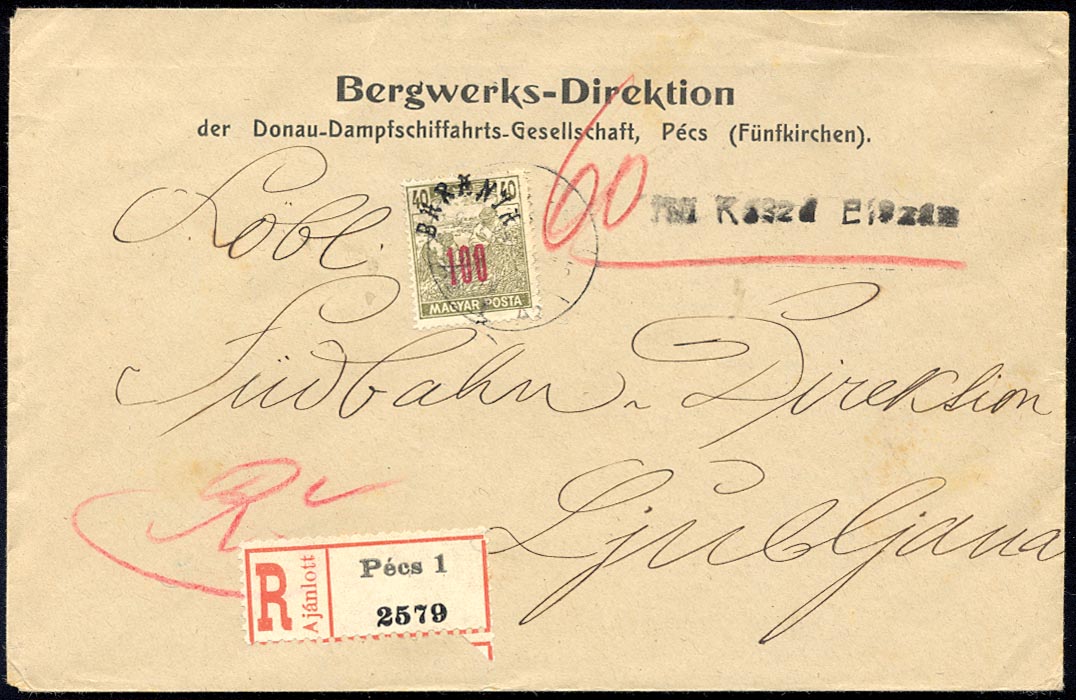 Bergwerks-Direktion
der Donau-Dampfschiffahrts-Gesellschaft, Pécs (Fünfkirchen).
60
40 40
BARANYA
100
MAGYAR POSTA
Löbl.
Südbahn-Direktion
Ljubljana
R
R Ajánlott
Pécs 1
2579